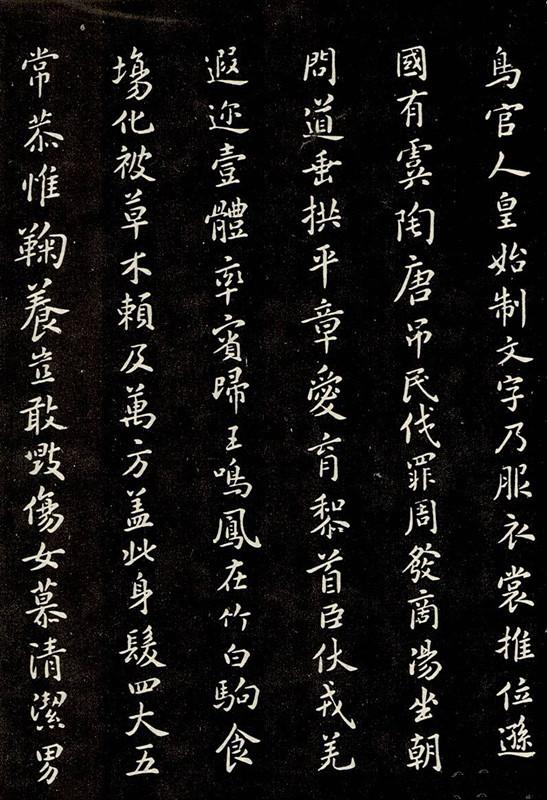 鳥官人皇始制文字乃服衣裳推位遜
國有虞陶唐吊民伐罪周發商湯坐朝
問道垂拱平章愛育黎首臣伏戎羌
遐迩壹體率賓歸王鳴鳳在竹白駒食
場化被草木賴及萬方盖此身髮四大五
常恭惟鞠養豈敢毀傷女慕清潔男